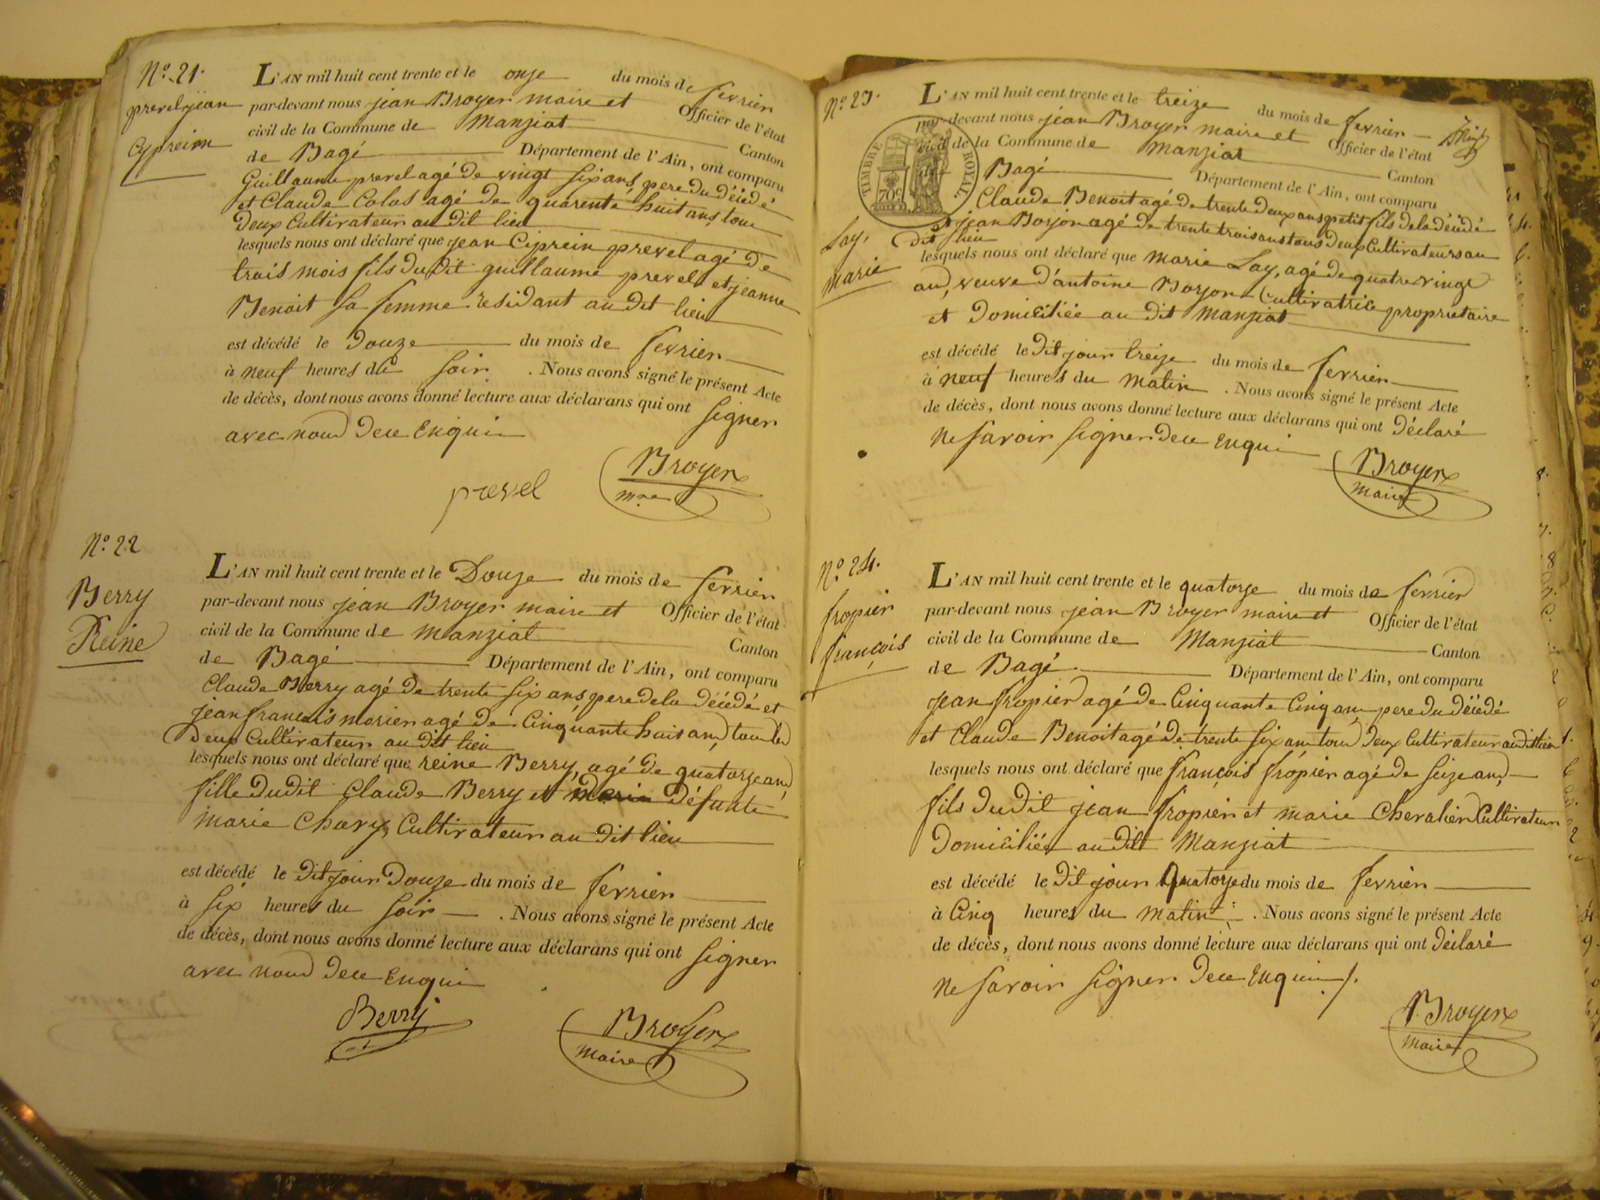 N.º 21.
prevel jean
Cypreim
L'AN mil huit cent trente et le onze du mois de fevrier
par-devant nous jean Broyer maire et Officier de l'état
civil de la Commune de Manziat Canton
de Bagé Département de l'Ain, ont comparu
Guillaume prevel agé de vingt six ans, pere du décédé
et Claude Colas agé de quarente huit ans, tous
deux Cultivateur au dit lieu
lesquels nous ont déclaré que jean Ciprein prevel agé de
trois mois fils du dit guillaume prevel et jeanne
Benoit sa femme residant au dit lieu
est décédé le Douze du mois de fevrier
à neuf heures du Soir . Nous avons signé le présent Acte
de décès, dont nous avons donné lecture aux déclarans qui ont Signer
avec nous Dece Enquis
prevel
Broyer
maire
N.º 22
Berry
Reine
L'AN mil huit cent trente et le Douze du mois de fevrier
par-devant nous jean Broyer maire et Officier de l'état
civil de la Commune de Manziat Canton
de Bagé Département de l'Ain, ont comparu
Claude Berry agé de trente six ans, pere de la décédé et
jean francois morier agé de Cinquante huit ans, tous les
Deux Cultivateur au dit lieu
lesquels nous ont déclaré que reine Berry, agé de quatorze ans,
fille du dit Claude Berry et défunte
marie Chavy, Cultivateur au dit lieu
est décédé le Dit jour Douze du mois de fevrier
à Six heures du Soir . Nous avons signé le présent Acte
de décès, dont nous avons donné lecture aux déclarans qui ont Signer
avec nous Dece Enquis
Berry
Broyer
maire
N.º 23.
Lay,
marie
TIMBRE ROYAL
70c
L'AN mil huit cent trente et le treize du mois de fevrier
par-devant nous jean Broyer maire et Officier de l'état
civil de la Commune de Manziat Canton
Bagé Département de l'Ain, ont comparu
Claude Benoit agé de trente deux ans petit fils de la décédé
et jean Boyon agé de trente trois ans tous deux Cultivateurs au
dit lieu
lesquels nous ont déclaré que marie Lay, agé de quatre vingt
ans, veuve d'antoine Boyon Cultivatrice proprietaire
et Domiciliée au dit Manziat
est décédé le Dit jour treize du mois de fevrier
à neuf heures du matin . Nous avons signé le présent Acte
de décès, dont nous avons donné lecture aux déclarans qui ont Déclaré
ne Savoir Signer Dece Enquis
Broyer
maire
N.º 24.
fropier
françois
L'AN mil huit cent trente et le quatorze du mois de fevrier
par-devant nous jean Broyer maire et Officier de l'état
civil de la Commune de Manziat Canton
de Bagé Département de l'Ain, ont comparu
jean fropier agé de Cinquante Cinq ans, pere du décédé
et Claude Benoit agé de trente Six ans tous Deux Cultivateur au dit lieu
lesquels nous ont déclaré que françois fropier agé de Seize ans,
fils du dit jean fropier et marie Chevalier Cultivateur
Domiciliée au dit Manziat
est décédé le Dit jour Quatorze du mois de fevrier
à Cinq heures du matin . Nous avons signé le présent Acte
de décès, dont nous avons donné lecture aux déclarans qui ont Déclaré
ne Savoir Signer Dece Enquis
Broyer
maire